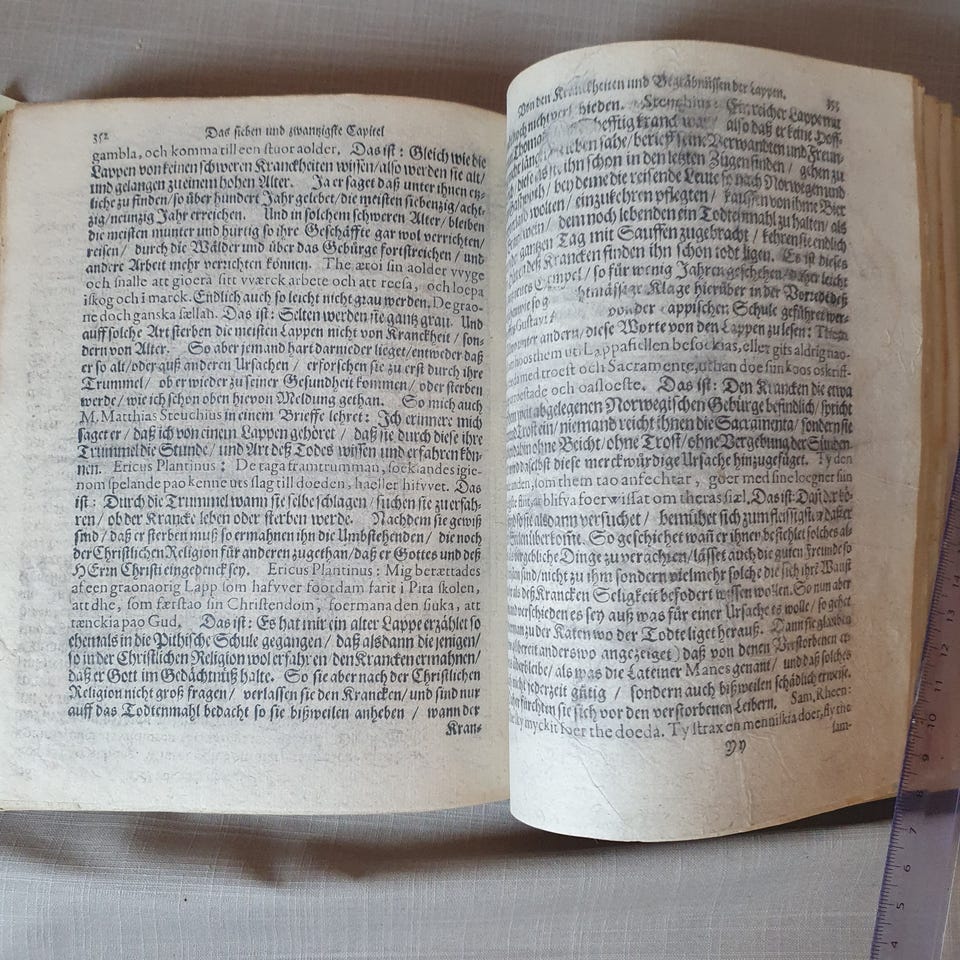 352
Das sieben und zwantzigste Capitel
gambla, och komma till een stuor aolder. Das ist: Gleich wie die
Lappen von keinen schweren Kranckheiten wissen/ also werden sie alt/
und gelangen zu einem hohen Alter. Ja er saget daß unter ihnen etz-
liche zu finden/ so über hundert Jahr gelebet/ die meisten siebenzig/ acht-
zig/ neunzig Jahr erreichen. Und in solchem schweren Alter/ bleiben
die meisten munter und hurtig so ihre Geschäffte gar wol verrichten/
reisen/ durch die Wälder und über das Gebürge fortstreichen/ und
andere Arbeit mehr verrichten können. The ætoi sin aolder vvyge
och snalle att gioera sitt vværck arbete och att reesa, och loepa
i skog och i marck. Endlich auch so leicht nicht grau werden. De grao-
ne doch ganska sællah. Das ist: Selten werden sie gantz grau. Und
auff solche Art sterben die meisten Lappen nicht von Kranckheit/ son-
dern von Alter. So aber jemand hart darnieder lieget/ entweder daß
er so alt/ oder auß anderen Ursachen/ erforschen sie zu erst durch ihre
Trummel/ ob er wieder zu seiner Gesundheit kommen/ oder sterben
werde/ wie ich schon oben hievon Meldung gethan. So mich auch
M. Matthias Steuchius in einem Brieffe lehret: Ich erinnere mich
saget er/ daß ich von einem Lappen gehöret/ daß sie durch diese ihre
Trummel die Stunde/ und Art deß Todes wissen und erfahren kön-
nen. Ericus Plantinus: De taga framtrumman, soek andes igie-
nom spelande pao kenne uts slag till doeden, haeller hifvvet. Das
ist: Durch die Trummel wann sie selbe schlagen/ suchen sie zu erfah-
ren/ ob der Krancke leben oder sterben werde. Nachdem sie gewiß
sind/ daß er sterben muß so ermahnen ihn die Umbstehenden/ die noch
der Christlichen Religion für anderen zugethan/ daß er Gottes und deß
HErrn Christi eingedenck sey. Ericus Plantinus: Mig berættades
af een graonaorig Lapp som hafvver footdam farit i Pita skolen,
att dhe, som færstao sin Christendom, foermana den siuka, att
tænckia pao Gud. Das ist: Es hat mir ein alter Lappe erzählet so
ehemals in die Pithische Schule gegangen/ daß alsdann die jenigen/
so in der Christlichen Religion wol erfahren/ den Krancken ermahnen/
daß er Gott im Gedächtnüß halte. So sie aber nach der Christlichen
Religion nicht groß fragen/ verlassen sie den Krancken/ und sind nur
auff das Todtenmahl bedacht so sie bißweilen anheben/ wann der
Kran-
Von den Kranckheiten und Begräbnüssen der Lappen. 353
noch nicht verschieden. Ein reicher Lappe mit
Thomas hefftig kranck war/ also daß er keine Hoff-
leben sahe/ berieff seine Verwandten und Freun-
diese als sie ihn schon in den letzten Zügen finden/ gehen zu
Gastwirth/ bey deme die reisende Leute so nach Norwegen und
wolten/ einzukehren pflegten/ kauffen von ihme Bier
wein/ dem noch lebenden ein Todtenmahl zu halten/ als
gantzen Tag mit Sauffen zugebracht/ kehren sie endlich
deß Krancken finden ihn schon todt ligen. Es ist dieses
Exempel/ so für wenig Jahren geschehen/ daher leicht
wie so rechtmässige Klage hierüber in der Vorrede deß
Gustavi von der Lappischen Schule geführet wer-
unter andern/ diese Worte von den Lappen zu lesen:
hoos them ut i Lappafiellen besoekias, eller gifs aldrig nao-
med troest och Sacramente, uthan doe sin koos oskrif-
och oasloeste. Das ist: Den Krancken die etwa
weit abgelegenen Norwegischen Gebürge befindlich/ spricht
Trost ein/ niemand reicht ihnen die Sacramenta/ sondern sie
ohne Beicht/ ohne Trost/ ohne Vergebung der Sünden.
daselbst diese merckwürdige Ursache hinzugefüget. Ty den
som them tao anfechtar, goer med sine loegner sin
blifva foervvissat om theras siæl. Das ist:
so sie alsdann versuchet/ bemühet sich zum fleissigsten daß er
überkomt. So geschiehet wañ er ihnen die selbe solches als
Dinge zu verachten/ lässet auch die guten Freunde so
sind/ nicht zu ihm sondern vielmehr solche die sich ihre Wanst
als deß Krancken Seligkeit befodert wissen wollen. So nun aber
verschieden es sey auß was für einer Ursache es wolle/ so gehet
man zu der Katen wo der Todte liget herauß. Dann sie glauben
bereit anderswo angezeiget) daß von denen Verstorbenen et-
überbleibe/ als was die Lateiner Manes genant/ und daß solches
nicht jederzeit gütig/ sondern auch bißweilen schädlich erweise.
fürchten sie sich vor den verstorbenen Leibern. Sam. Rheen:
myckit foer the doeda. Ty strax en menniskia doer, fly the
Yy
sam-
4 5 6 7 8 9 10 11 12 13 14